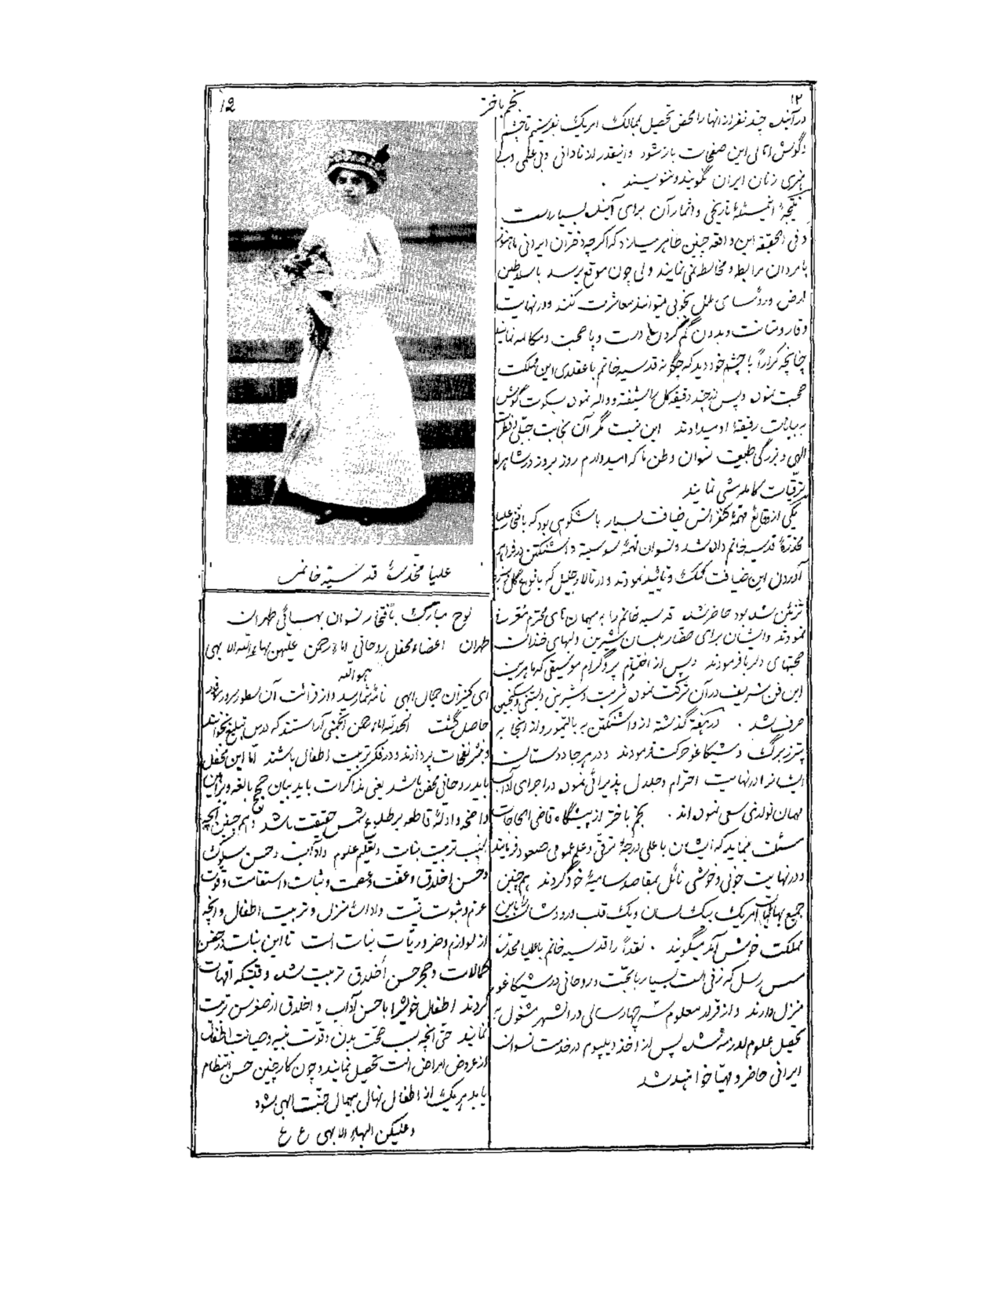 ۱۲
نجم باختر
12
در آتیه چند نفر از آنها را محض تحصیل بممالک امریک بفرستیم تا چشم
و گوش اهالی این صفحات باز شود و اینقدر از نادانی و بی علمی و بی
هنری زنان ایران نگویند و ننویسند .
نتیجهٔ تاریخی و اثمار آن برای آینده بسیار است
و فی الحقیقه این واقعه چنین ظاهر میسازد که اگرچه دختران ایرانی ما هنوز
با مردان مرابطه و مخالطه نمی نمایند ولی چون موقع برسد با سلاطین
ارض و رؤسای ملل بخوبی میتوانند معاشرت کنند و در نهایت
وقار و متانت و بدون گم کردن درست و پا صحبت و مکالمه نمایند
چنانچه کراراً با چشم خود دیدم که چگونه قدسیه خانم با عقلای این مملکت
صحبت نموده و پس از چند دقیقه کل را شیفته و واله نموده بسکوت گوش
به بیانات رقیقهٔ او میدادند این نیست مگر آن نجابت جبلی و نظرت
الهی و بزرگی طبیعت نسوان وطن ما که امیدوارم روز بروز در شاهراه
ترقیات کامله مشی نمایند
یکی از وقایع مهمهٔ کنفرانس ضیافت بسیار باشکوهی بود که بافتخار علیا
مخدرهٔ قدسیه خانم داده شد و نسوان مهمهٔ سوسیته واشنگتن در فراهم
آوردن این ضیافت کمک و تأیید نمودند و در تالار جلیل که بانواع گل و سبزه
تزئین شده بود حاضر شده قدسیه خانم را به میهمانهای محترم معرفی
نمودند و ایشان برای حضار بلسان شیرین دلهای خداست
صحبتهای دلربا فرمودند و پس از اختتام پروگرام موسیقی که ماهرین
این فن شریف در آن شرکت نموده شربت و شیرینی و بستنی و یکجینی
صرف شد . در هفتهٔ گذشته از واشنگتن به بالتیمور و از آنجا به
پترزبرگ و شیکاغو حرکت فرمودند و در هر جا دوستان
ایشانرا در نهایت احترام و جلال پذیرائی نموده و در اجرای آداب
مهمان نوازی سعی نموده اند . نجم باختر از پیشگاه قاضی الحاجات
مسئلت مینماید که ایشان با علی درجهٔ ترقی و علم عمومی صعود فرمایند
و در نهایت خوبی و خوشی نائل بمقاصد سامیهٔ خود گردند همچنین
جمیع بهائیان امریک بیک لسان و یک قلب ورود شانرا باین
مملکت خوش آمد میگویند . نقداً قدسیه خانم با علیا مخدره
مس رسل که زنی است بسیار با محبت و روحانی در شیکاغو
منزل دارند و از قرار معلوم سه چهار سالی در آنشهر مشغول به
تحصیل علوم لازمه شده پس از اخذ دیپلوم در خدمت نسوان
ایرانی حاضر و مهیا خواهند شد
علیا مخدرهٔ قدسیه خانم
لوح مبارک بافتخار نسوان بهائی طهران
طهران اعضاء محفل روحانی اماءرحمن علیهن بهاءالله الابهی
هوالله
ای کنیزان جمال ابهی نامهٔ شما رسید و از قرائت آن سطور سرور موفور
حاصل گشت الحمدلله اماءرحمن انجمنی آراستند که درس تبلیغ بخوانند
و بنشر نفحات پردازند و در فکر تربیت اطفال باشند اما این محفل
باید روحانی محض باشد یعنی مذاکرات باید بیان حجج بالغه و براهین
واضحه و ادلهٔ قاطعه بر طلوع شمس حقیقت باشد و همچنین آنچه
سبب تربیت بنات و تعلیم علوم و آداب و حسن سلوک
و حسن اخلاق و عفت و عصمت و ثبات و استقامت و قوت
عزم و ثبوت نیت و ادارهٔ منزل و تربیت اطفال و آنچه
از لوازم و ضروریات بنات است تا این بنات در حصن
کمالات و حجر حسن اخلاق تربیت شده وقتیکه امهات
گردند اطفال خویشرا باحسن آداب و اخلاق از صغر سن تربیت
نمایند حتی آنچه سبب صحت بدن و قوت بنیه و صیانت اطفال
از عروض امراض است تحصیل نمایند و چون کار چنین حسن انتظام
یابد هر یک از اطفال نهال بیهمال جنت ابهی شود
و علیکن البهاء الابهی ع ع